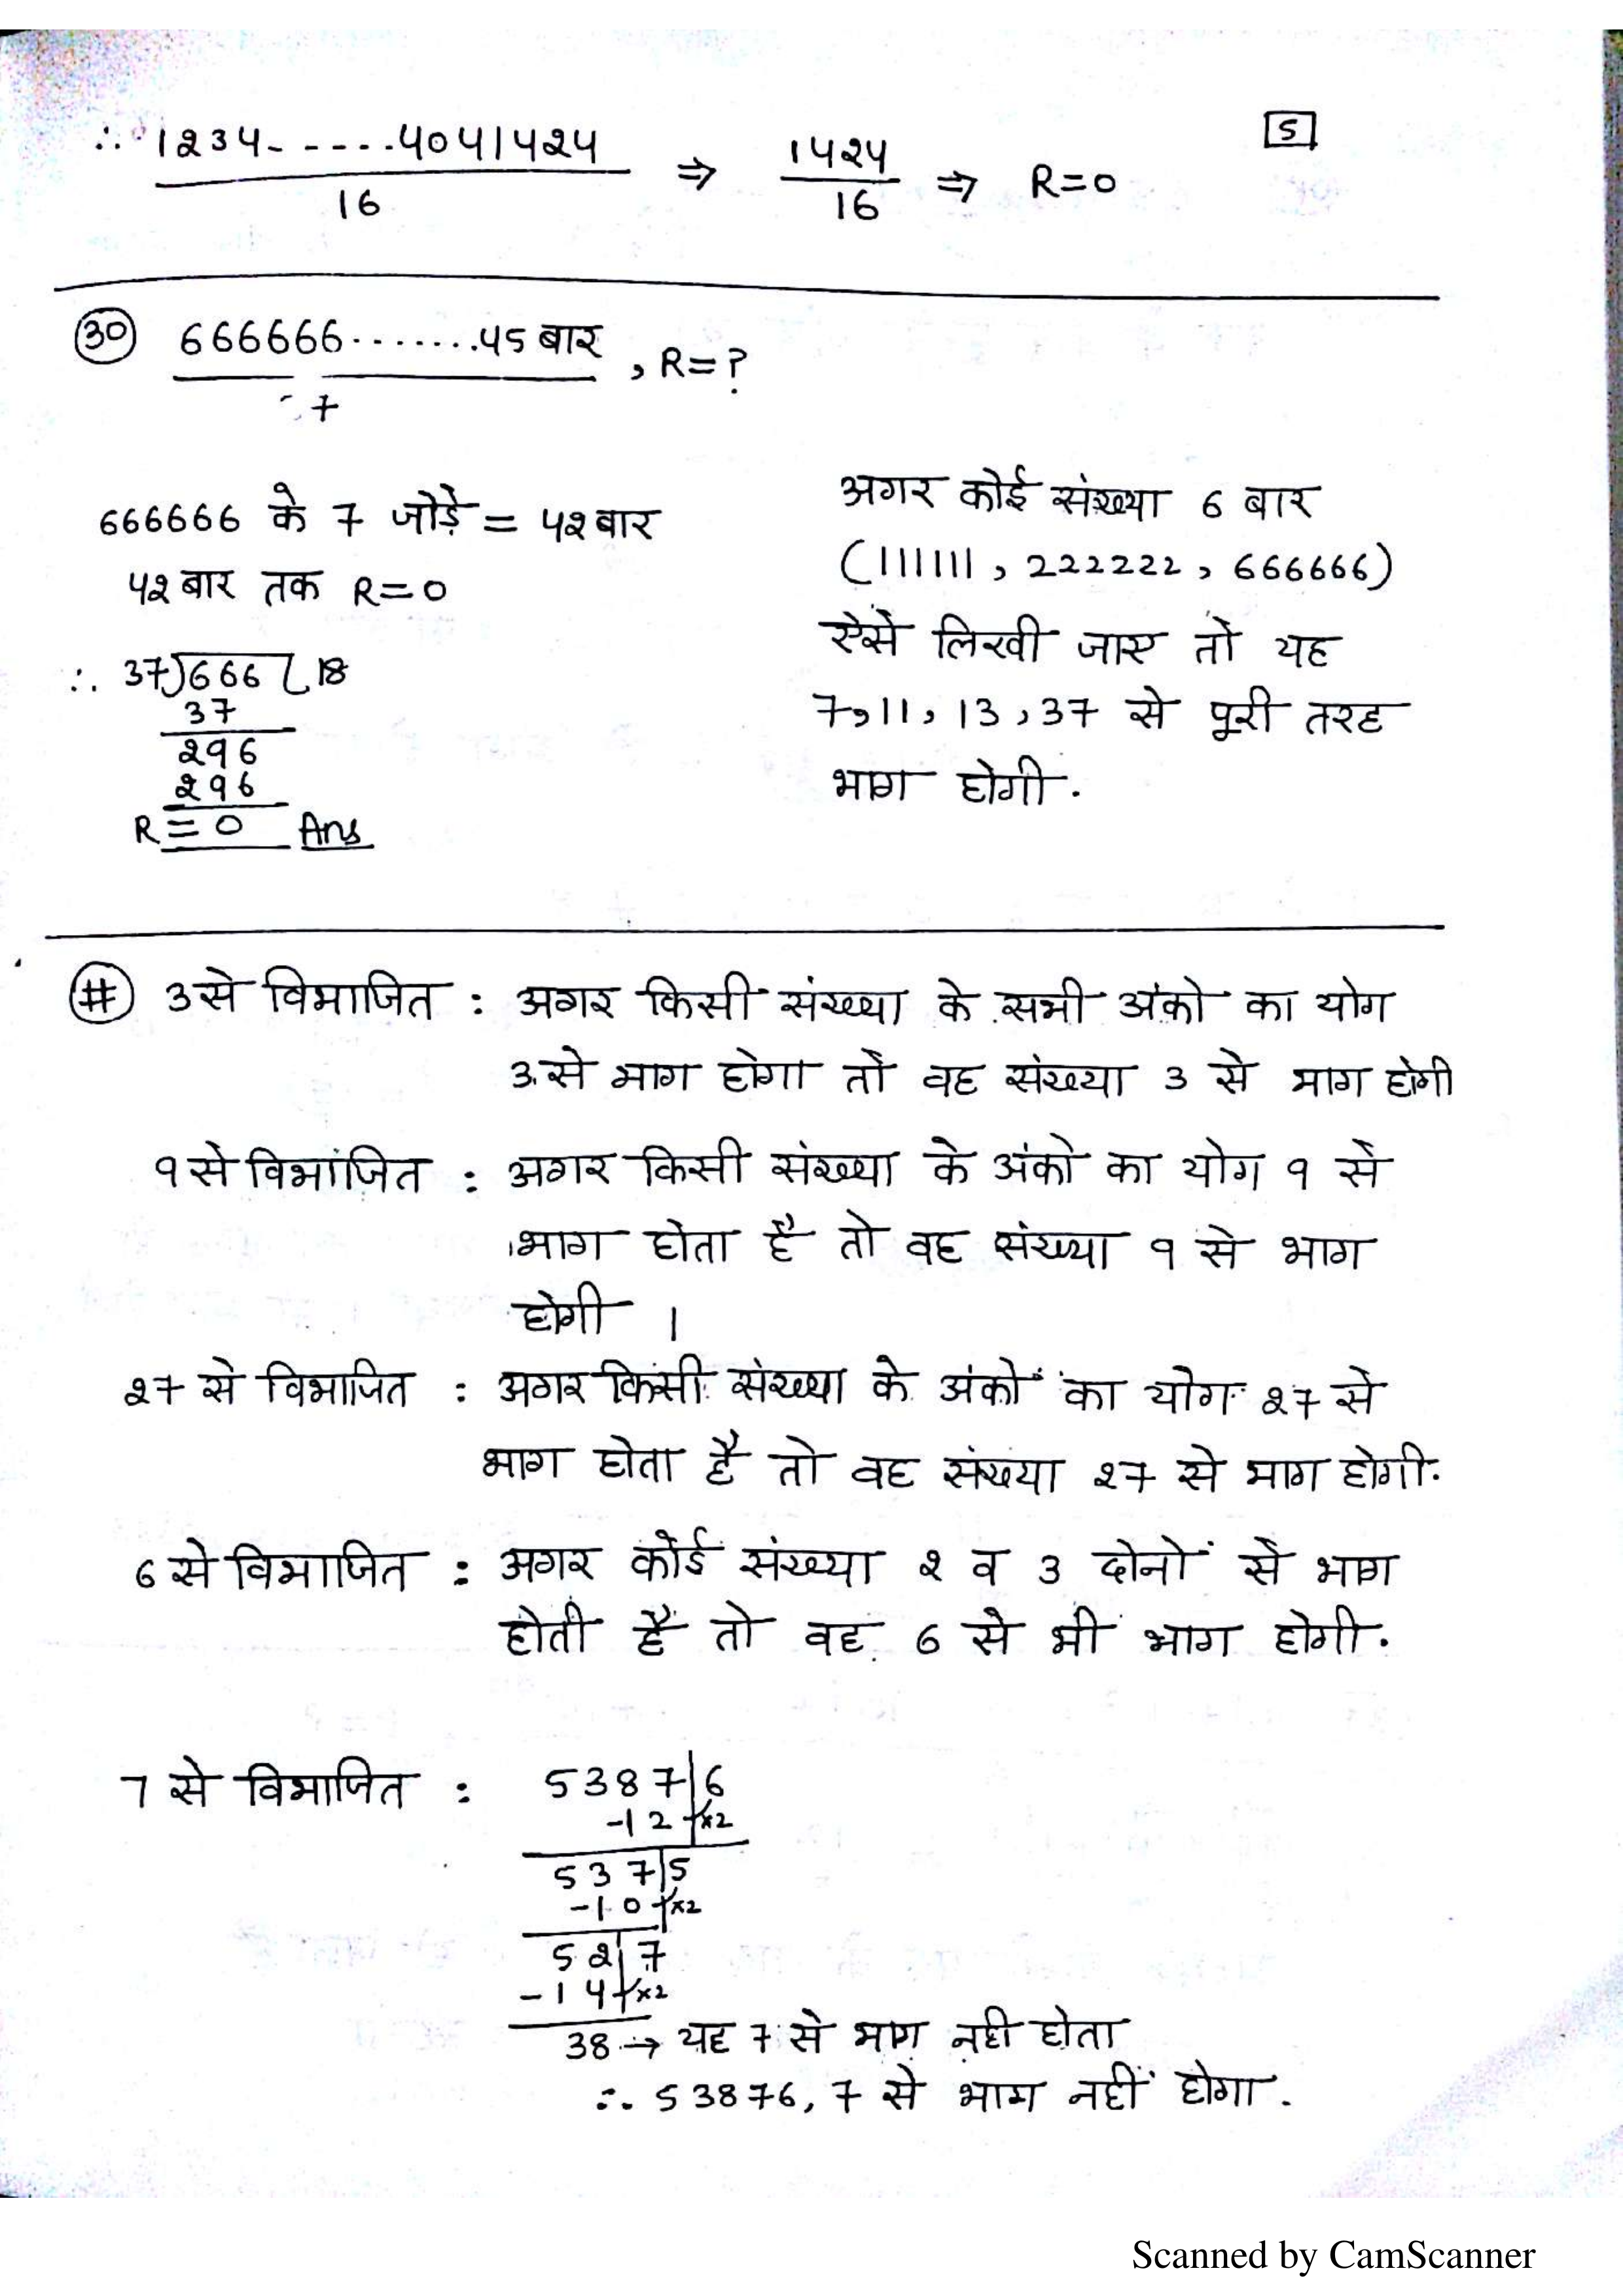 5
∴ 1234- - - - - ..4041424 / 16 ⇒ 1424 / 16 ⇒ R=0
30 666666.......45 बार / 7 , R=?
666666 के 7 जोड़े = 42 बार
42 बार तक R=0
∴ 37)666(18
37
296
296
R=0 Ans
अगर कोई संख्या 6 बार
(111111, 222222, 666666)
ऐसे लिखी जाए तो यह
7,11, 13, 37 से पूरी तरह
भाग होगी.
# 3 से विभाजित : अगर किसी संख्या के सभी अंको का योग
3 से भाग होगा तो वह संख्या 3 से भाग होगी
9 से विभाजित : अगर किसी संख्या के अंको का योग 9 से
भाग होता है तो वह संख्या 9 से भाग
होगी ।
27 से विभाजित : अगर किसी संख्या के अंकों का योग 27 से
भाग होता है तो वह संख्या 27 से भाग होगी.
6 से विभाजित : अगर कोई संख्या 2 व 3 दोनों से भाग
होती है तो वह 6 से भी भाग होगी.
7 से विभाजित : 5387|6
-12 ×2
537|5
-10 ×2
52|7
-14 ×2
38 → यह 7 से भाग नही होता
∴ 53876, 7 से भाग नहीं होगा.
Scanned by CamScanner